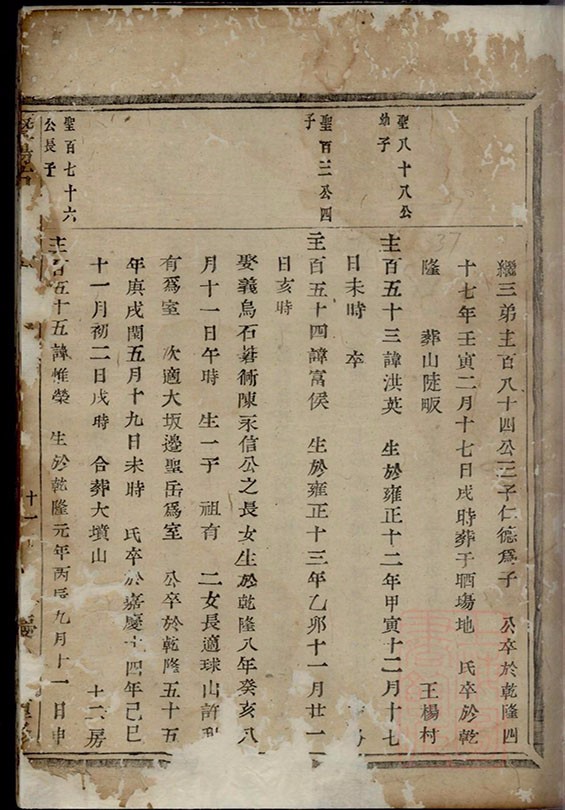 繼三弟主百八十四公三子仁德爲子 公卒於乾隆四
十七年壬寅二月十七日戌時葬于晒場地 氏卒於乾
隆 葬山陡畈 王楊村
聖八十八公
幼子
主百五十三諱洪英 生於雍正十二年甲寅十二月十七
日未時 卒
聖百二公四
子
主百五十四諱富侯 生於雍正十三年乙卯十一月廿一
日亥時
娶義烏石塔衕陳永信公之長女生於乾隆八年癸亥八
月十一日午時 生一子 祖有 二女長適球山許
有爲室 次適大坂邊聖岳爲室 公卒於乾隆五十五
年庚戌閏五月十九日未時 氏卒於嘉慶十四年己巳
十一月初二日戌時 合葬大墳山 十二房
聖百七十六
公長子
主百五十五諱惟榮 生於乾隆元年丙辰九月十一日申
十一
37